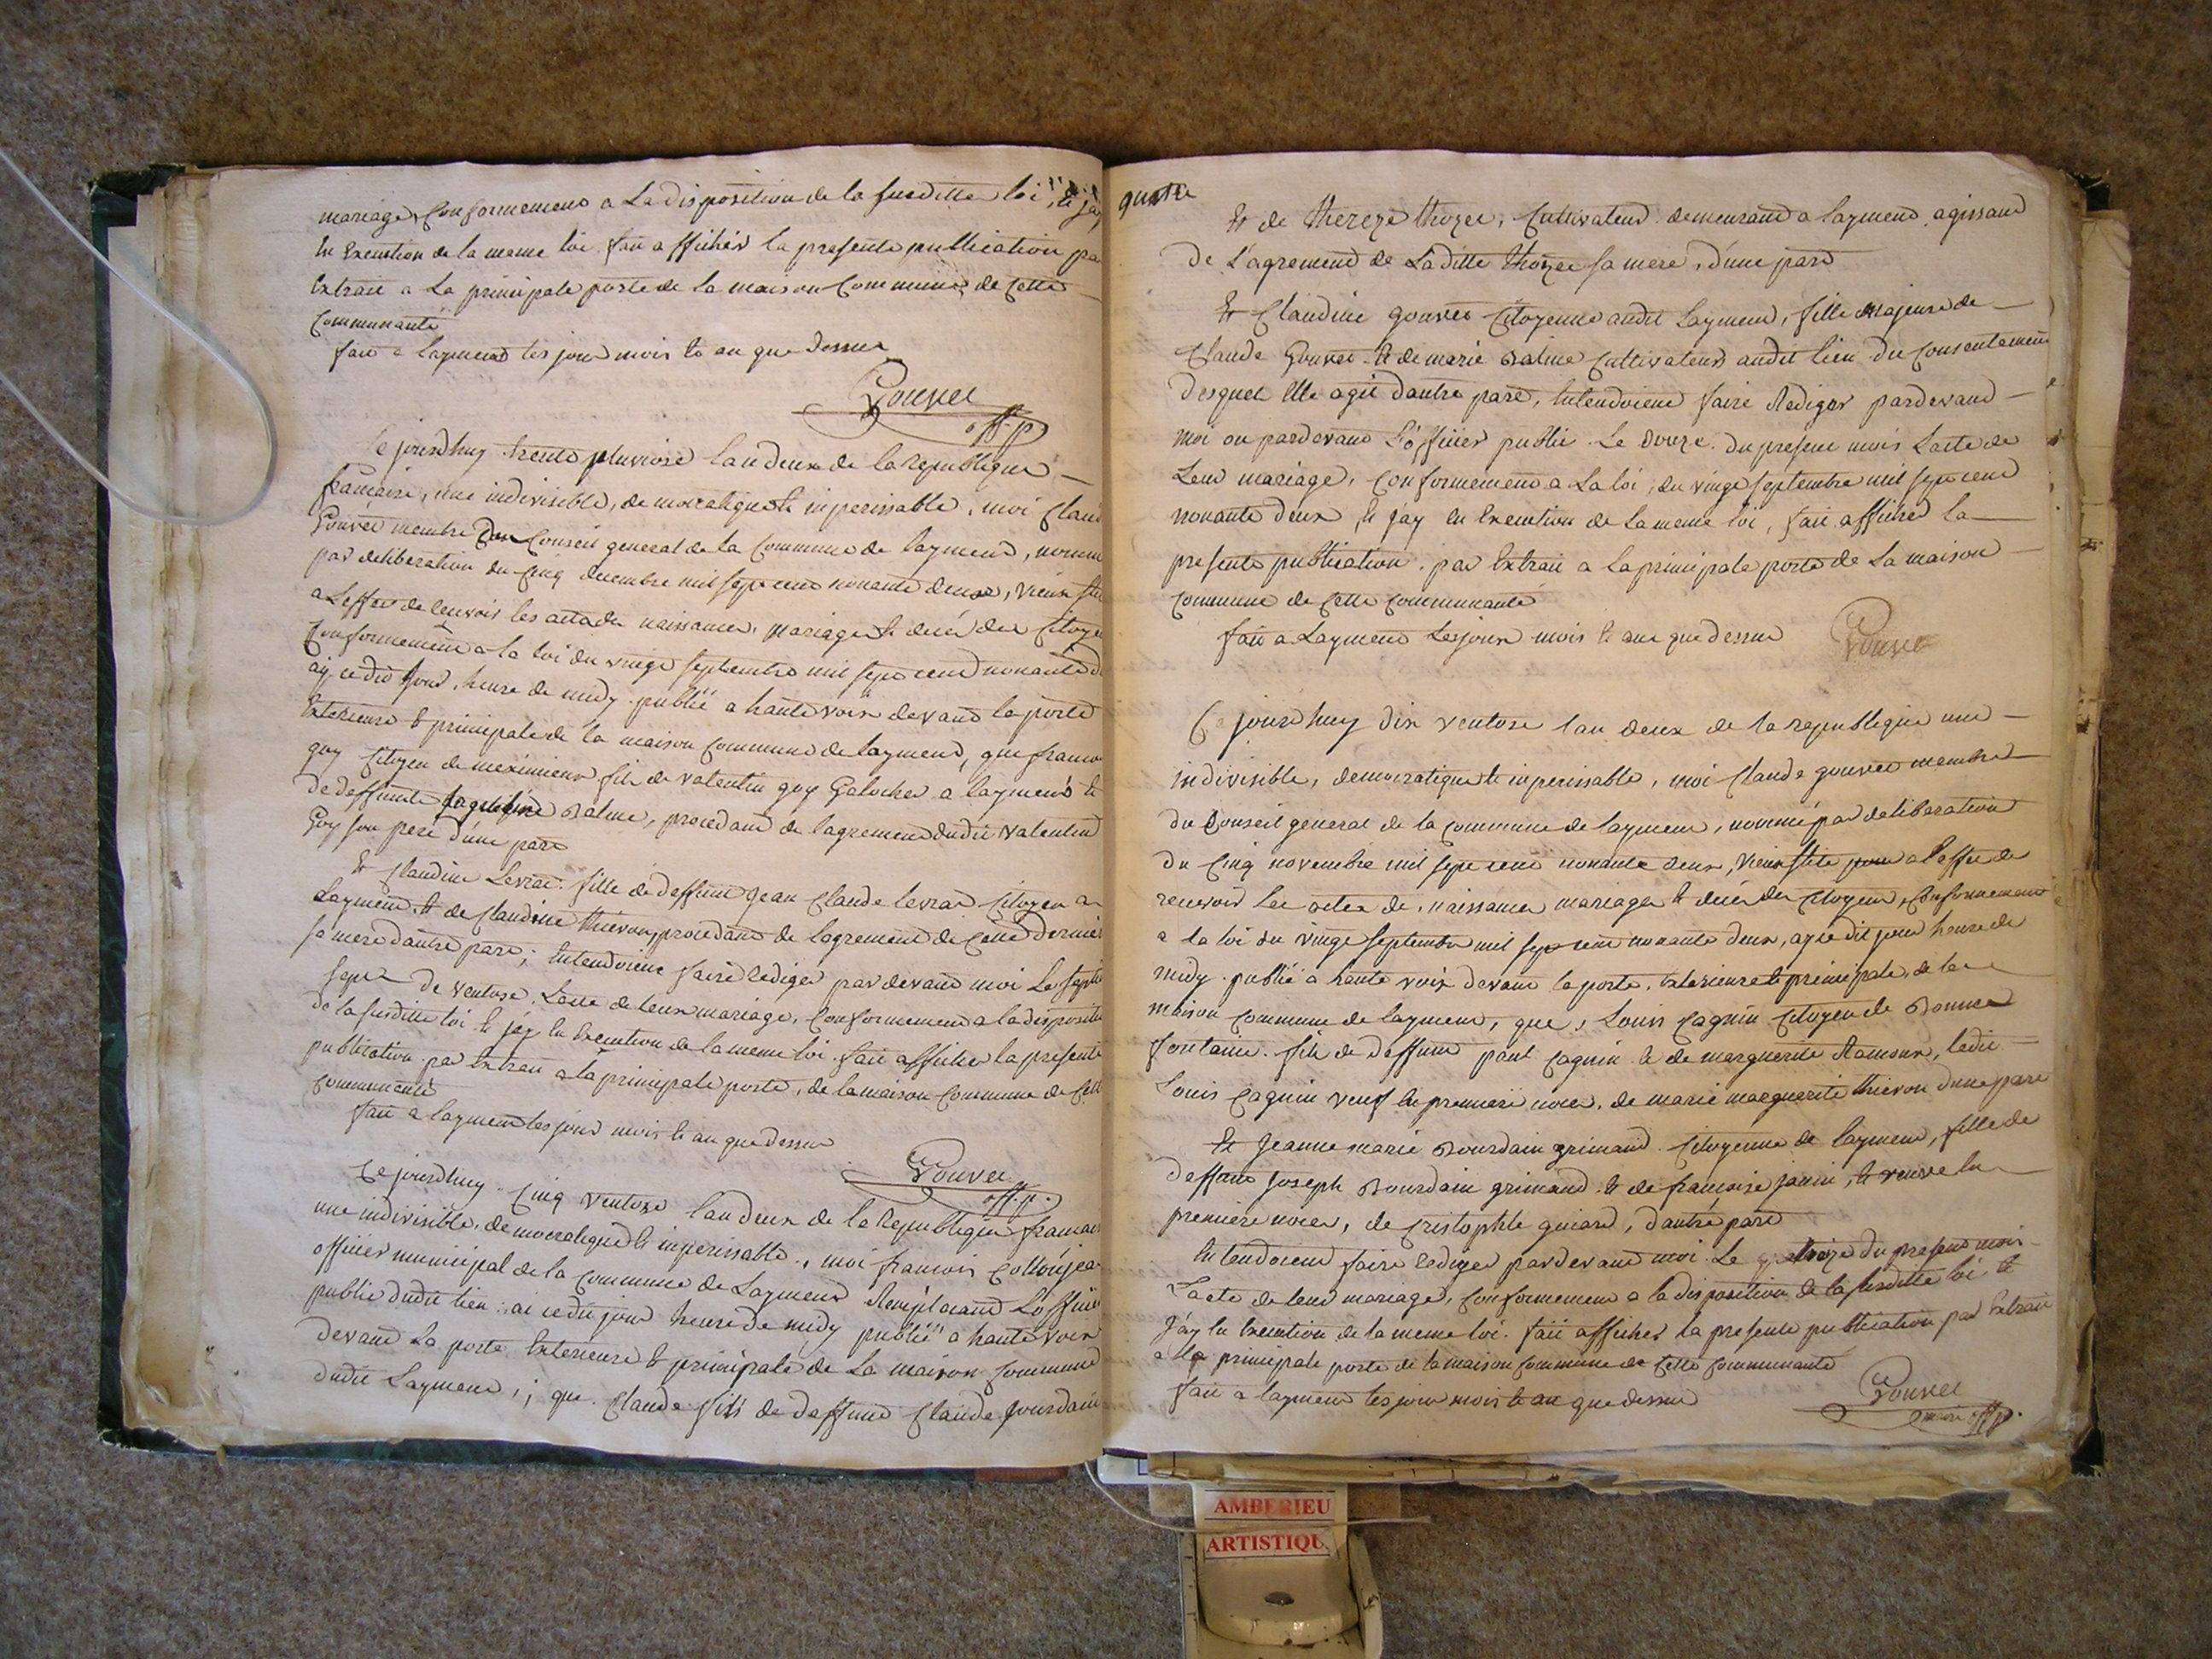 mariage, conformement a La disposition de la susditte loi, et j'ay
en Execution de la meme loi fait afficher la presente publication pa
Extrait a La principale porte de la maison Commune de Cette
Communauté
fait a laymend les jour mois et an que dessus
Gouvet
off. p.
Ce jourdhuy trente pluviose l'an deux de la republique
francaise, une indivisible, democratique et imperissable, moi Claud
Gouvet membre du Conseil general de la Commune de laymend, nomm
par deliberation du Cinq decembre mil sept cent nonante deux, vieux sti
a L'effet de recevoir les actes de naissances, mariages et decés des Citoye
Conformement a la loi du vingt septembre mil sept cend nonante d
ay, ce dit jour, heure de midy publié a haute voix devand la porte
Exterieure et principale de la maison Commune de laymend, que franco
guy Citoyen de meximieux fils de valentin guy Galocher a laymend et
de deffunte Balme, procedand de l'agrement dudit valentin
Guy son pere d'une part
Et Claudine Levrat fille de deffunt Jean Claude levrat Citoyen a
Laymend et de Claudine thievon, procedand de l'agrement de Cette Dernier
sa mere d'autre part; Entendoient faire rediger par devand moi Le septi
sept de ventose, L'acte de leur mariage, Conformement a la dispositi
de la susditte loi et j'ay En Execution de la meme loi fait afficher la presente
publication par Extrait a la principale porte, de la maison Commune de Cett
Communauté
fait a laymend les jour mois et an que dessus
Gouvet
off. p.
Ce jourdhuy Cinq ventose l'an deux de la Republique francais
une indivisible, democratique et imperissable, moi francois Cottonjea
officier municipal de la Commune de Laymend Remplacand L'officie
public dudit lieu ai ce dit jour heure de midy publié a haute voix
devand La porte Exterieure et principale de La maison Commune
dudit Laymend,; que Claude fils de deffund Claude Jourdain
quatre
Et de thereze thozet, Cultivateur demeurand a laymend agissand
de L'agrement de Laditte thozet sa mere, d'une part
Et Claudine gouvet Citoyenne audit Laymend, fille majeure de
Claude Gouvet et de marie Balme Cultivateurs audit lieu du Consentement
desquel Elle agit d'autre part, Entendoient faire Rediger pardevand
moi ou pardevand L'officier public Le douze du present mois L'acte de
Leur mariage, Conformement a La loi, du vingt septembre mil sept cend
nonante deux, et j'ay En Execution de la meme loi, fait afficher la
presente publication par Extrait a la principale porte de La maison
Commune de Cette Communauté
fait a Laymend Les jour mois et an que dessus
Gouvet
Ce jourdhuy dix ventose l'an deux de la republique une
indivisible, democratique et imperissable, moi Claude gouvet membre
du Conseil general de la commune de laymend, nommé par deliberation
du Cinq novembre mil sept cend nonante deux, vieux stile pour a l'effet de
recevoir les actes de naissances mariages et decés des Citoyens, Conformement
a la loi du vingt septembre mil sept cend nonante deux, ay ce dit jour heure de
midy publié a haute voix devand la porte Exterieure et principale, de la
maison Commune de laymend, que, Louis Cagnin Citoyen de Bonne
fontaine fils de deffund paul Cagnin et de marguerite Ramoux, ledit
Louis Cagnin veuf En premiere noces, de marie marguerite thievon d'une part
Et Jeanne marie Bourdain grimand Citoyenne de laymend, fille de
deffund Joseph Bourdain grimand et de francoise Janin, et veuve En
premiere noces, de cristophle guiard, d'autre part
Entendoient faire rediger pardevand moi Le treize du present mois
L'acte de leur mariage, Conformement a la disposition de la susditte loi et
J'ay En Execution de la meme loi fait afficher la presente publication par Extrait
a la principale porte de la maison commune de Cette Communauté
fait a laymend les jour mois et an que dessus
Gouvet
off p.
AMBERIEU
ARTISTIQU